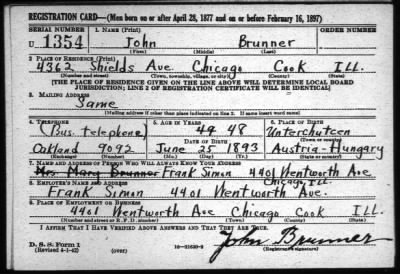 REGISTRATION CARD—(Men born on or after April 28, 1877 and on or before February 16, 1897)
SERIAL NUMBER 1. NAME (Print) ORDER NUMBER
U 1354 John Brunner
(First) (Middle) (Last)
2. PLACE OF RESIDENCE (Print)
4362 Shields Ave Chicago Cook Ill.
(Number and street) (Town, township, village, or city) (County) (State)
[THE PLACE OF RESIDENCE GIVEN ON THE LINE ABOVE WILL DETERMINE LOCAL BOARD
JURISDICTION; LINE 2 OF REGISTRATION CERTIFICATE WILL BE IDENTICAL]
3. MAILING ADDRESS
Same
[Mailing address if other than place indicated on line 2. If same insert word same]
4. TELEPHONE 5. AGE IN YEARS 6. PLACE OF BIRTH
(Bus. telephone) 49 48 Unterchutzen
DATE OF BIRTH (Town or county)
Oakland 9092 June 25 1893 Austria-Hungary
(Exchange) (Number) (Mo.) (Day) (Yr.) (State or country)
7. NAME AND ADDRESS OF PERSON WHO WILL ALWAYS KNOW YOUR ADDRESS
Mrs. Mary Brunner Frank Simon 4401 Wentworth Ave
Chicago, Ill.
8. EMPLOYER'S NAME AND ADDRESS
Frank Simon 4401 Wentworth Ave.
9. PLACE OF EMPLOYMENT OR BUSINESS
4401 Wentworth Ave Chicago Cook Ill.
(Number and street or R. F. D. number) (Town) (County) (State)
I AFFIRM THAT I HAVE VERIFIED ABOVE ANSWERS AND THAT THEY ARE TRUE.
D. S. S. Form 1
(Revised 4-1-42) (over) 16—21630-2 John Brunner
(Registrant's signature)